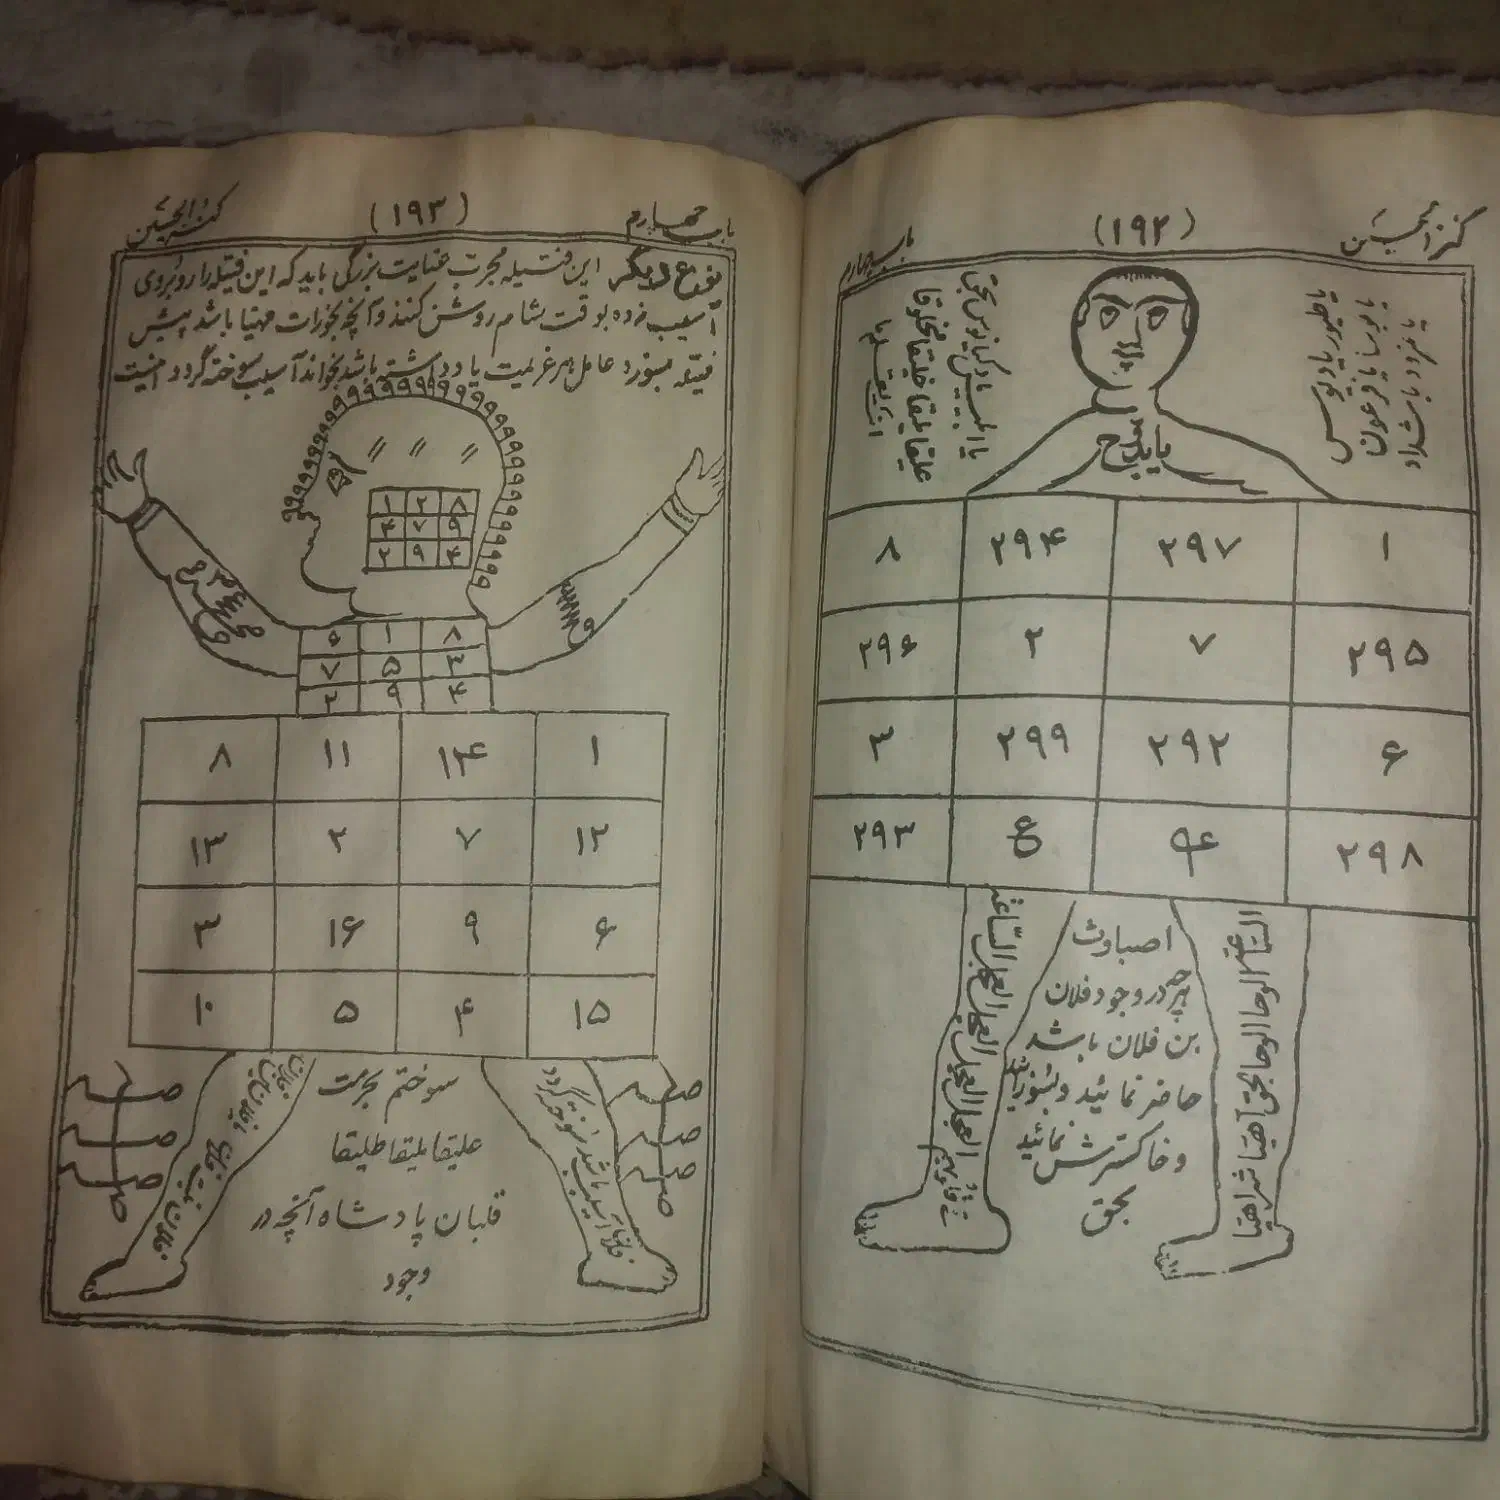 کنز الحسین
(۱۹۲)
باب چهارم
یا نمرود یا شداد
یا فرعون
علیقا ملیقا خلیقا مخلوقا
یا بدوح
۸ ۲۹۴ ۲۹۷ ۱
۲۹۶ ۲ ۷ ۲۹۵
۳ ۲۹۹ ۲۹۲ ۶
۲۹۳ ۲۹۸
اصباوث
هرچه در وجود فلان
بن فلان باشد
حاضر نمائید و بسوزانید
و خاکسترش نمائید
بحق
العجل العجل العجل الساعة
الساعة الوحا الوحا بحق اهیا شراهیا
کنز الحسین
(۱۹۳)
باب چهارم
نوع دیگر این فتیله مجرب عنایت بزرگی باید که این فتیله را روبروی
آسیب زده بوقت شام روشن کنند و آنچه بخورات مهیا باشد پیش
فتیله بسوزد عامل هر عزیمت یاد داشته باشد بخواند آسیب سوخته گردد اینست
۱ ۲ ۸
۴ ۷ ۹
۲ ۹ ۴
۵ ۱ ۸
۷ ۵ ۳
۲ ۹ ۴
۸ ۱۱ ۱۴ ۱
۱۳ ۲ ۷ ۱۲
۳ ۱۶ ۹ ۶
۱۰ ۵ ۴ ۱۵
سوختم بحرمت
علیقا ملیقا طلیقا
قلبان پادشاه آنچه در
وجود